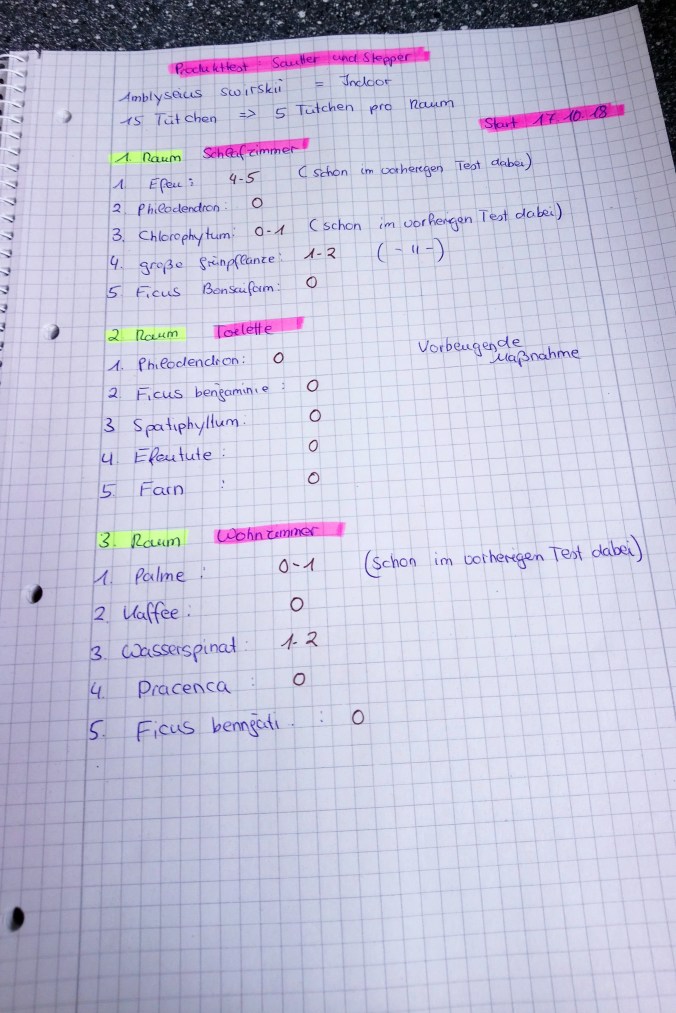 Produkttest: Sautter und Stepper
Amblyseius swirskii = Indoor
15 Tütchen => 5 Tütchen pro Raum
Start 17.10.18
1. Raum Schlafzimmer
1. Efeu: 4-5 (schon im vorheregen Test dabei)
2. Philodendron: 0
3. Chlorophytum: 0-1 (schon im vorhergen Test dabei)
4. große Grünpflanze: 1-2 (-"-)
5. Ficus Bonsaiform: 0
2. Raum Toelette
1. Philodendron: 0
Vorbeugende
Maßnahme
2. Ficus benjaminie: 0
3 Spatiphyllum: 0
4 Efeutute: 0
5. Farn : 0
3. Raum Wohnzimmer
1. Palme: 0-1 (schon im vorheregen Test dabei)
2. Kaffee: 0
3. Wasserspinat: 1-2
4. Dracenca : 0
5. Ficus : 0